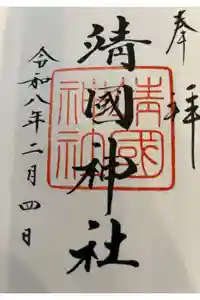 奉拝
靖國神社
靖國神社
令和八年二月四日